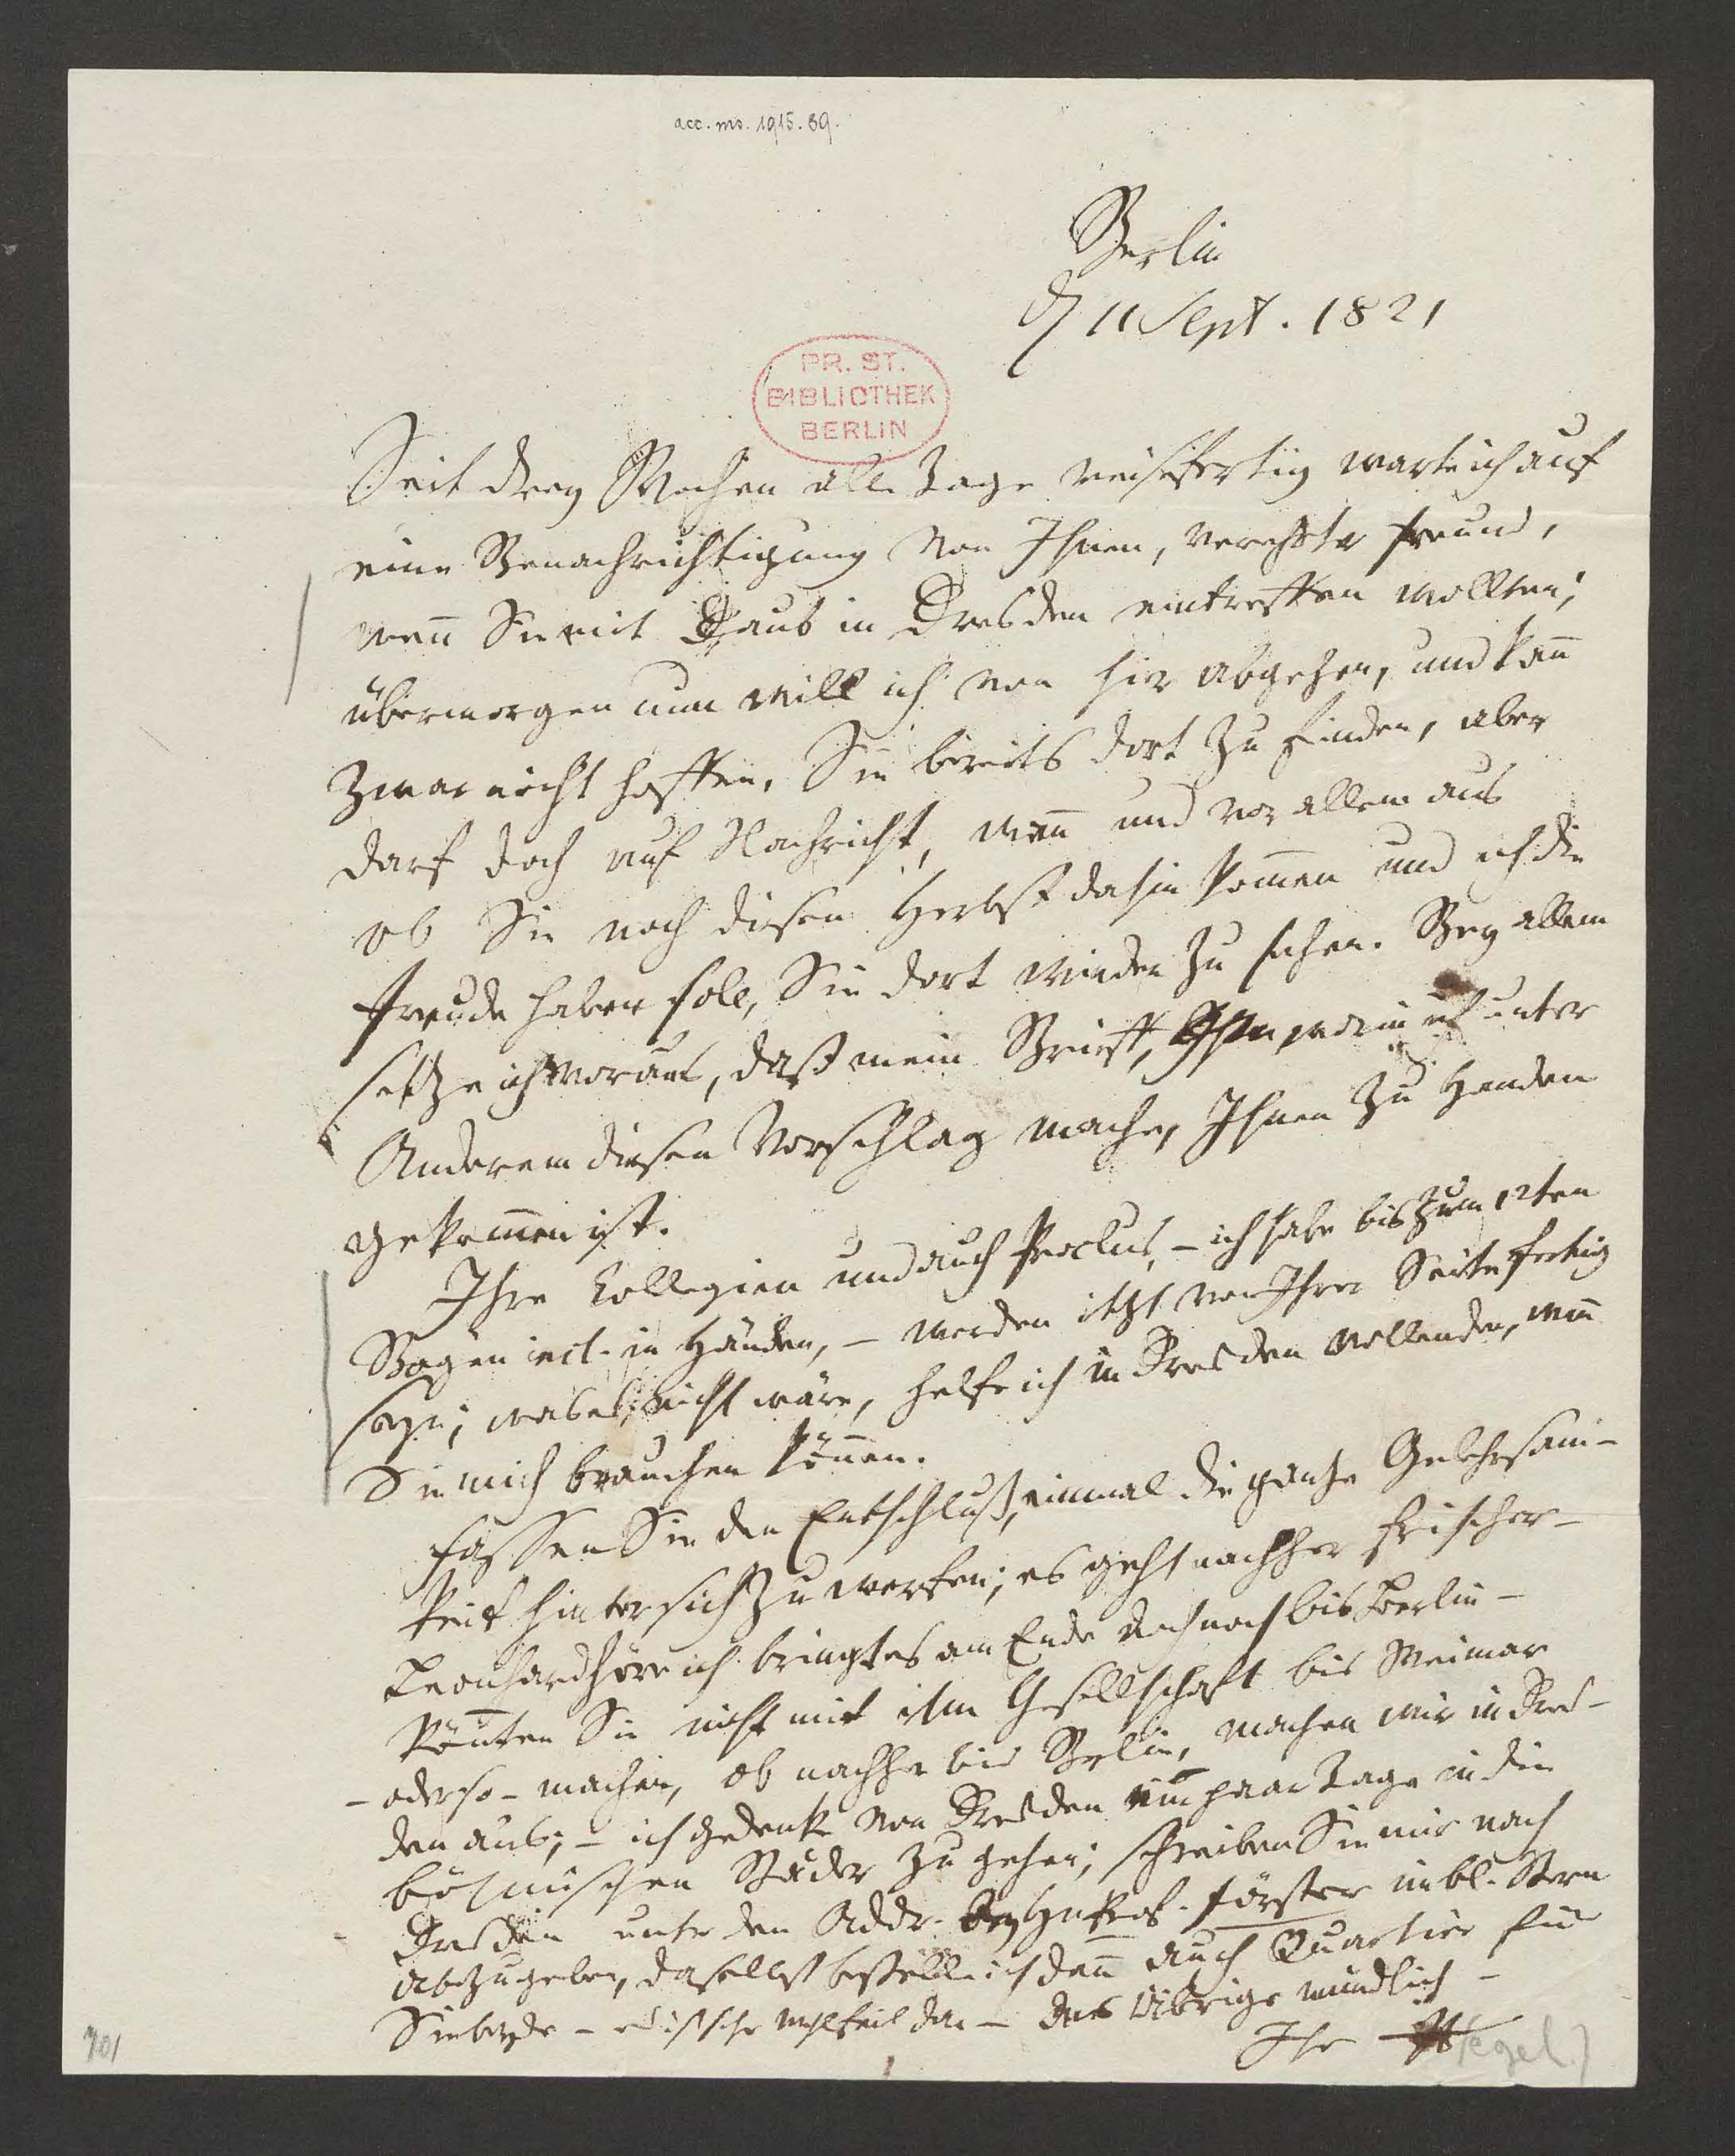 acc. ms. 1915. 89.
Berlin
d 11 Sept. 1821
PR. ST.
BIBLIOTHEK
BERLIN
Seit drey Wochen alle Tage reisefertig warte ich auf
eine Benachrichtigung von Ihnen, verehrter Freund,
wenn Sie mit Daub in Dresden eintreffen wollten;
übermorgen nun will ich von hier abgehen, und kan̄
zwar nicht hoffen, Sie bereits dort zu finden, aber
darf doch auf Nachricht, wan̄ und vor allem aus
ob Sie noch diesen Herbst dahin kom̄en und ich die
Freude haben soll, Sie dort wieder zu sehen. Bey allem
setze ich voraus, daß mein Brieff, worin ich unter
Anderem diesen Vorschlag mache, Ihnen zu Handen
gekom̄en ist.
Ihre Collegien und auch Proclus, – ich habe bis zum 12ten
Bogen incl. in Händen, – werden itzt von Ihrer Seite fertig
seyn; was es nicht wäre, helfe ich in Dresden vollenden, wen̄
Sie mich brauchen kön̄en.
Fassen Sie den Entschluß, einmal die ganze Gelehrsam-
keit hinter sich zu werfen; es geht nachher frischer –
Leonhard höre ich bringt es am Ende doch noch bis Berlin –
kön̄ten Sie nicht mit ihm Gesellschaft bis Weimar
– oder so – machen, ob nachher bis Berlin, machen wir in Dres-
den aus; – ich gedenke von Dresden ein paar Tage in die
böhmischen Bäder zu gehen; schreiben Sie mir nach
Dresden unter der Addr. bey H. Prof. Förster im bl. Stern
abzugeben, daselbst bestelle ich dan̄ auch Quartier für
Sie beyde – das Übrige mündlich –
Ihr Hegel
701